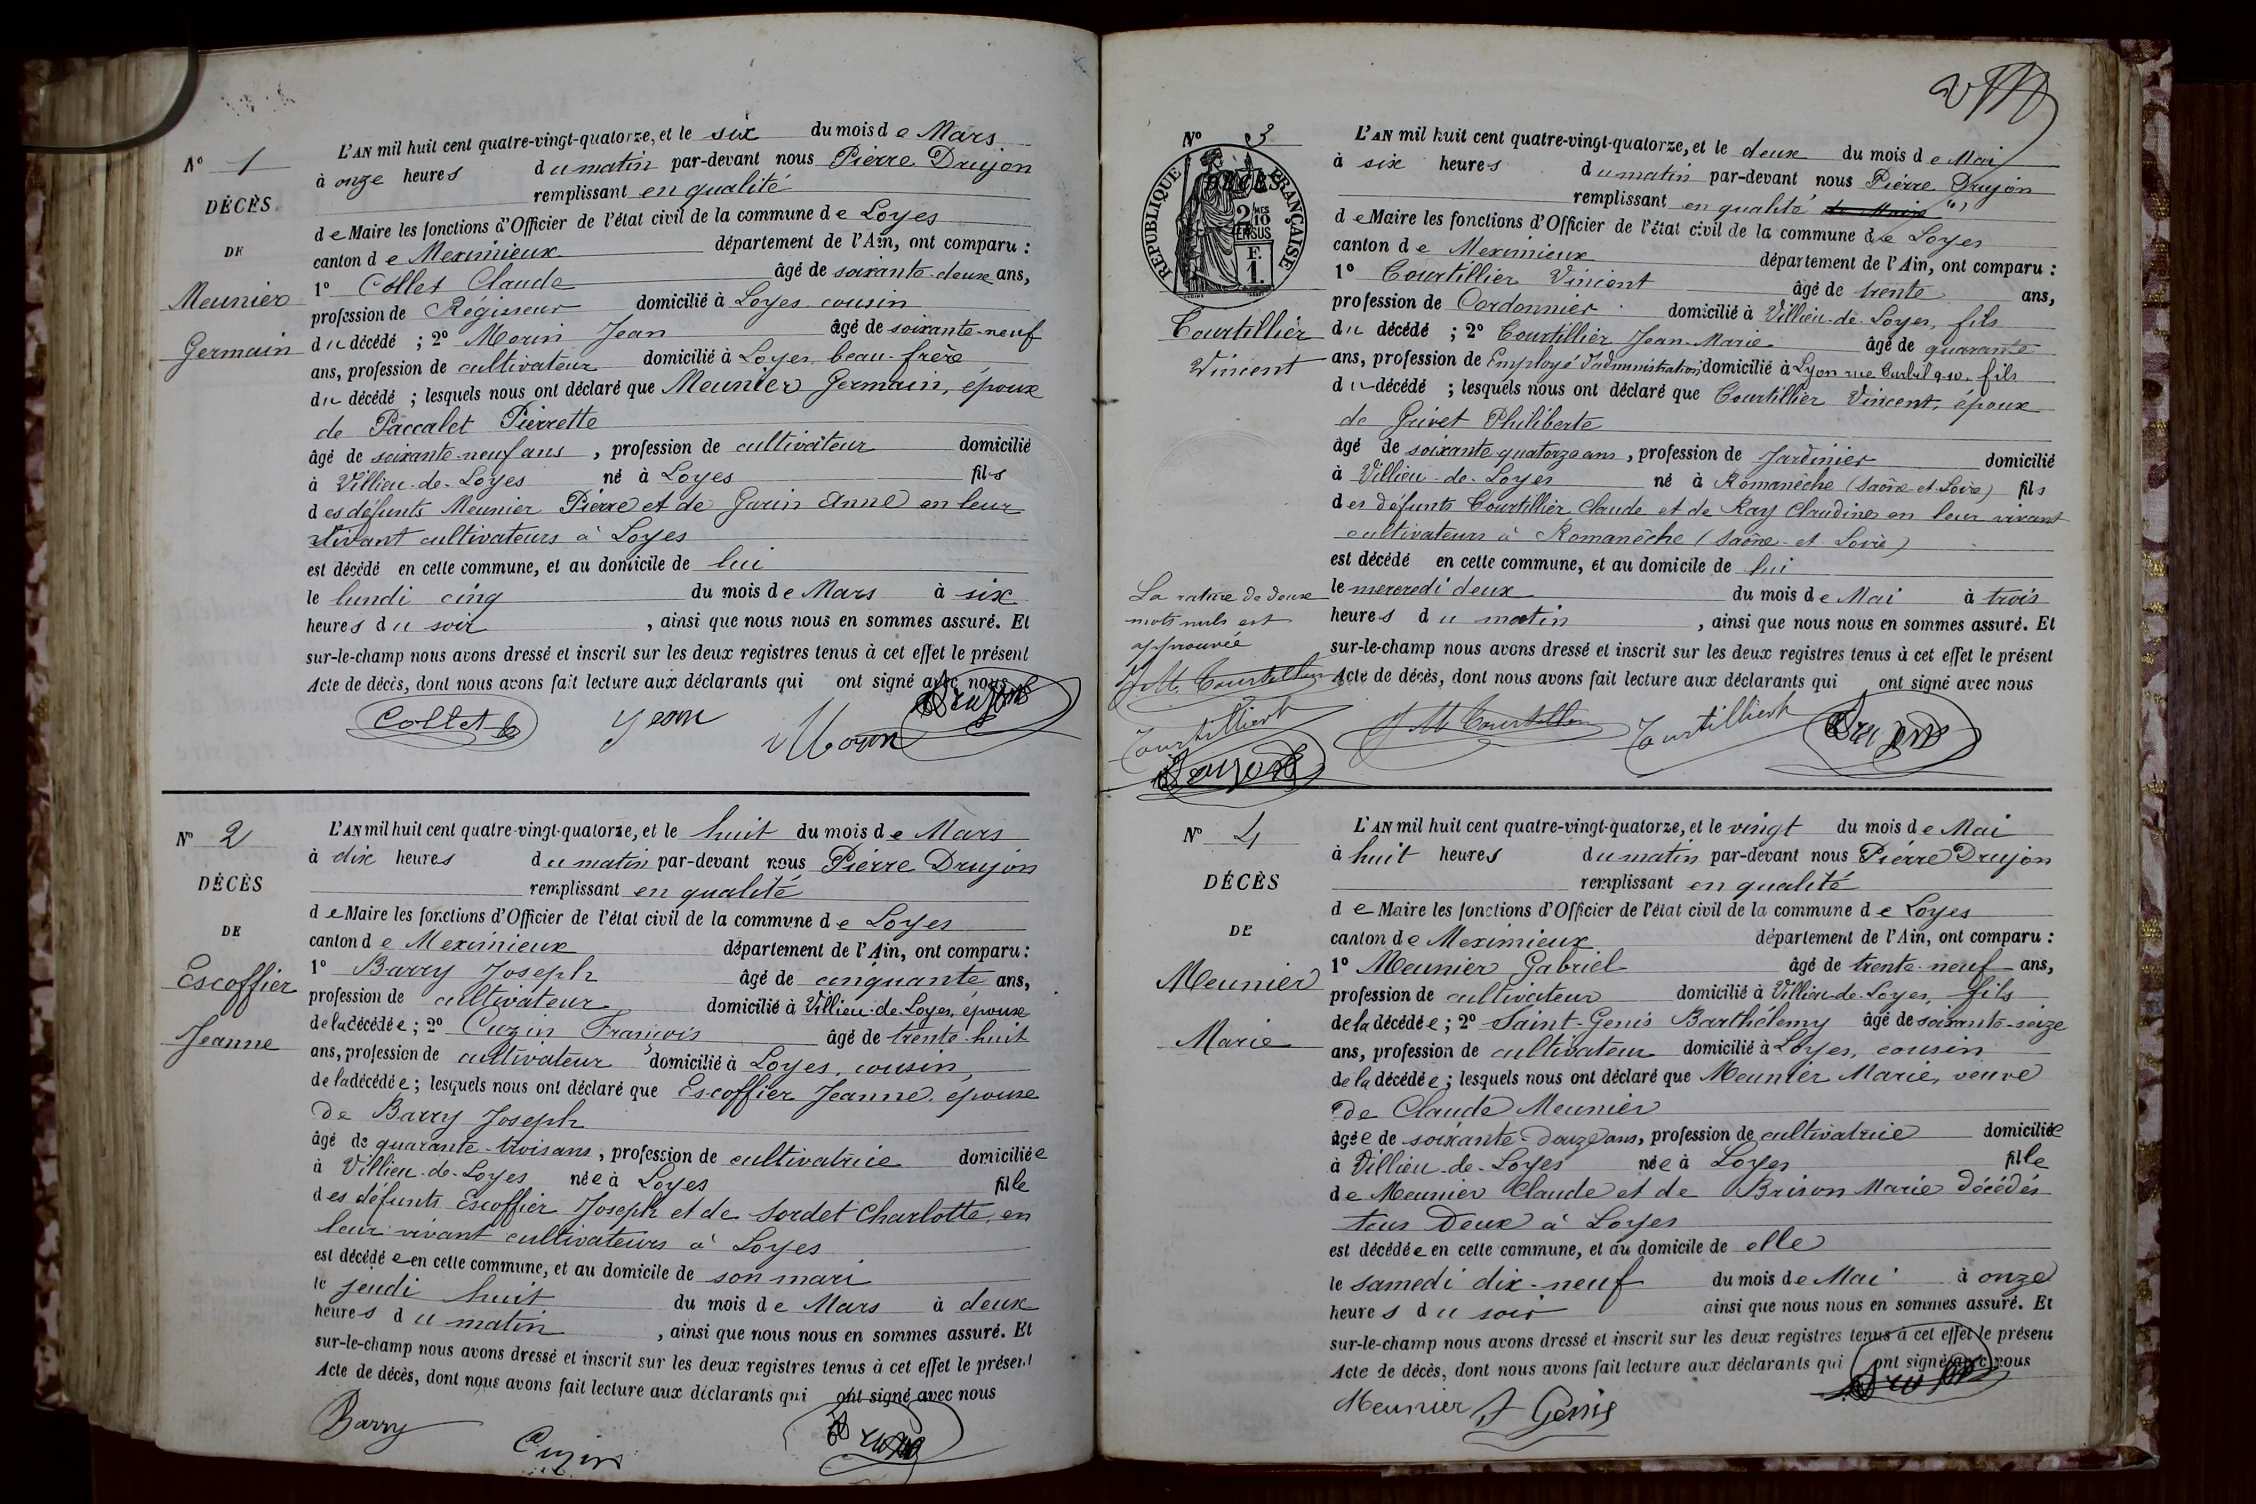 N° 1
DÉCÈS
DE
Meunier
Germain
L'AN mil huit cent quatre-vingt-quatorze, et le six du mois de Mars
à onze heures du matin par-devant nous Pierre Drujon
remplissant en qualité
de Maire les fonctions d'Officier de l'état civil de la commune de Loyes
canton de Meximieux département de l'Ain, ont comparu :
1° Collet Claude âgé de soixante-deux ans,
profession de Régisseur domicilié à Loyes cousin
du décédé ; 2° Morin Jean âgé de soixante-neuf
ans, profession de cultivateur domicilié à Loyes, beau-frère
du décédé ; lesquels nous ont déclaré que Meunier Germain, époux
de Paccalet Pierrette
âgé de soixante-neuf ans, profession de cultivateur domicilié
à Villieu-de-Loyes né à Loyes fils
des défunts Meunier Pierre et de Garin Anne en leur
vivant cultivateurs à Loyes
est décédé en cette commune, et au domicile de lui
le lundi cinq du mois de Mars à six
heures du soir, ainsi que nous nous en sommes assuré. Et
sur-le-champ nous avons dressé et inscrit sur les deux registres tenus à cet effet le présent
Acte de décès, dont nous avons fait lecture aux déclarants qui ont signé avec nous
Collet Jean Morin Drujon
N° 2
DÉCÈS
DE
Escoffier
Jeanne
L'AN mil huit cent quatre-vingt-quatorze, et le huit du mois de Mars
à dix heures du matin par-devant nous Pierre Drujon
remplissant en qualité
de Maire les fonctions d'Officier de l'état civil de la commune de Loyes
canton de Meximieux département de l'Ain, ont comparu :
1° Barry Joseph âgé de cinquante ans,
profession de cultivateur domicilié à Villieu-de-Loyes, épouse
de la décédée ; 2° Cuzin François âgé de trente-huit
ans, profession de cultivateur domicilié à Loyes, cousin,
de la décédée ; lesquels nous ont déclaré que Escoffier Jeanne, épouse
de Barry Joseph
âgé de quarante-trois ans, profession de cultivatrice domiciliée
à Villieu-de-Loyes née à Loyes fille
des défunts Escoffier Joseph et de Sordet Charlotte, en
leur vivant cultivateurs à Loyes
est décédée en cette commune, et au domicile de son mari
le jeudi huit du mois de Mars à deux
heures du matin, ainsi que nous nous en sommes assuré. Et
sur-le-champ nous avons dressé et inscrit sur les deux registres tenus à cet effet le présent
Acte de décès, dont nous avons fait lecture aux déclarants qui ont signé avec nous
Barry Cuzin Drujon
N° 3
DÉCÈS
RÉPUBLIQUE FRANÇAISE
2/10 EN SUS
F. 1.
Courtillier
Vincent
L'AN mil huit cent quatre-vingt-quatorze, et le deux du mois de Mai
à six heures du matin par-devant nous Pierre Drujon
remplissant en qualité de Maire
de Maire les fonctions d'Officier de l'état civil de la commune de Loyes
canton de Meximieux département de l'Ain, ont comparu :
1° Courtillier Vincent âgé de trente ans,
profession de Cordonnier domicilié à Villieu-de-Loyes, fils
du décédé ; 2° Courtillier Jean-Marie âgé de quarante
ans, profession de Employé d'administration domicilié à Lyon rue fils
du décédé ; lesquels nous ont déclaré que Courtillier Vincent, époux
de Guivet Philiberte
âgé de soixante-quatorze ans, profession de Jardinier domicilié
à Villieu-de-Loyes né à Romanèche (Saône-et-Loire) fils
des défunts Courtillier Claude et de Ray Claudine en leur vivant
cultivateurs à Romanèche (Saône-et-Loire)
est décédé en cette commune, et au domicile de lui
le mercredi deux du mois de Mai à trois
heures du matin, ainsi que nous nous en sommes assuré. Et
sur-le-champ nous avons dressé et inscrit sur les deux registres tenus à cet effet le présent
Acte de décès, dont nous avons fait lecture aux déclarants qui ont signé avec nous
La rature de deux
mots nuls est
approuvée
JM Courtillier
Courtillier
Drujon
JM Courtillier Courtillier Drujon
N° 4
DÉCÈS
DE
Meunier
Marie
L'AN mil huit cent quatre-vingt-quatorze, et le vingt du mois de Mai
à huit heures du matin par-devant nous Pierre Drujon
remplissant en qualité
de Maire les fonctions d'Officier de l'état civil de la commune de Loyes
canton de Meximieux département de l'Ain, ont comparu :
1° Meunier Gabriel âgé de trente-neuf ans,
profession de cultivateur domicilié à Villieu-de-Loyes, fils
de la décédée ; 2° Saint-Genis Barthélemy âgé de soixante-seize
ans, profession de cultivateur domicilié à Loyes, cousin
de la décédée ; lesquels nous ont déclaré que Meunier Marie, veuve
de Claude Meunier
âgée de soixante-douze ans, profession de cultivatrice domiciliée
à Villieu-de-Loyes née à Loyes fille
de Meunier Claude et de Brison Marie décédés
tous deux à Loyes
est décédée en cette commune, et au domicile de elle
le samedi dix-neuf du mois de Mai à onze
heures du soir ainsi que nous nous en sommes assuré. Et
sur-le-champ nous avons dressé et inscrit sur les deux registres tenus à cet effet le présent
Acte de décès, dont nous avons fait lecture aux déclarants qui ont signé avec nous
Meunier St Genis Drujon